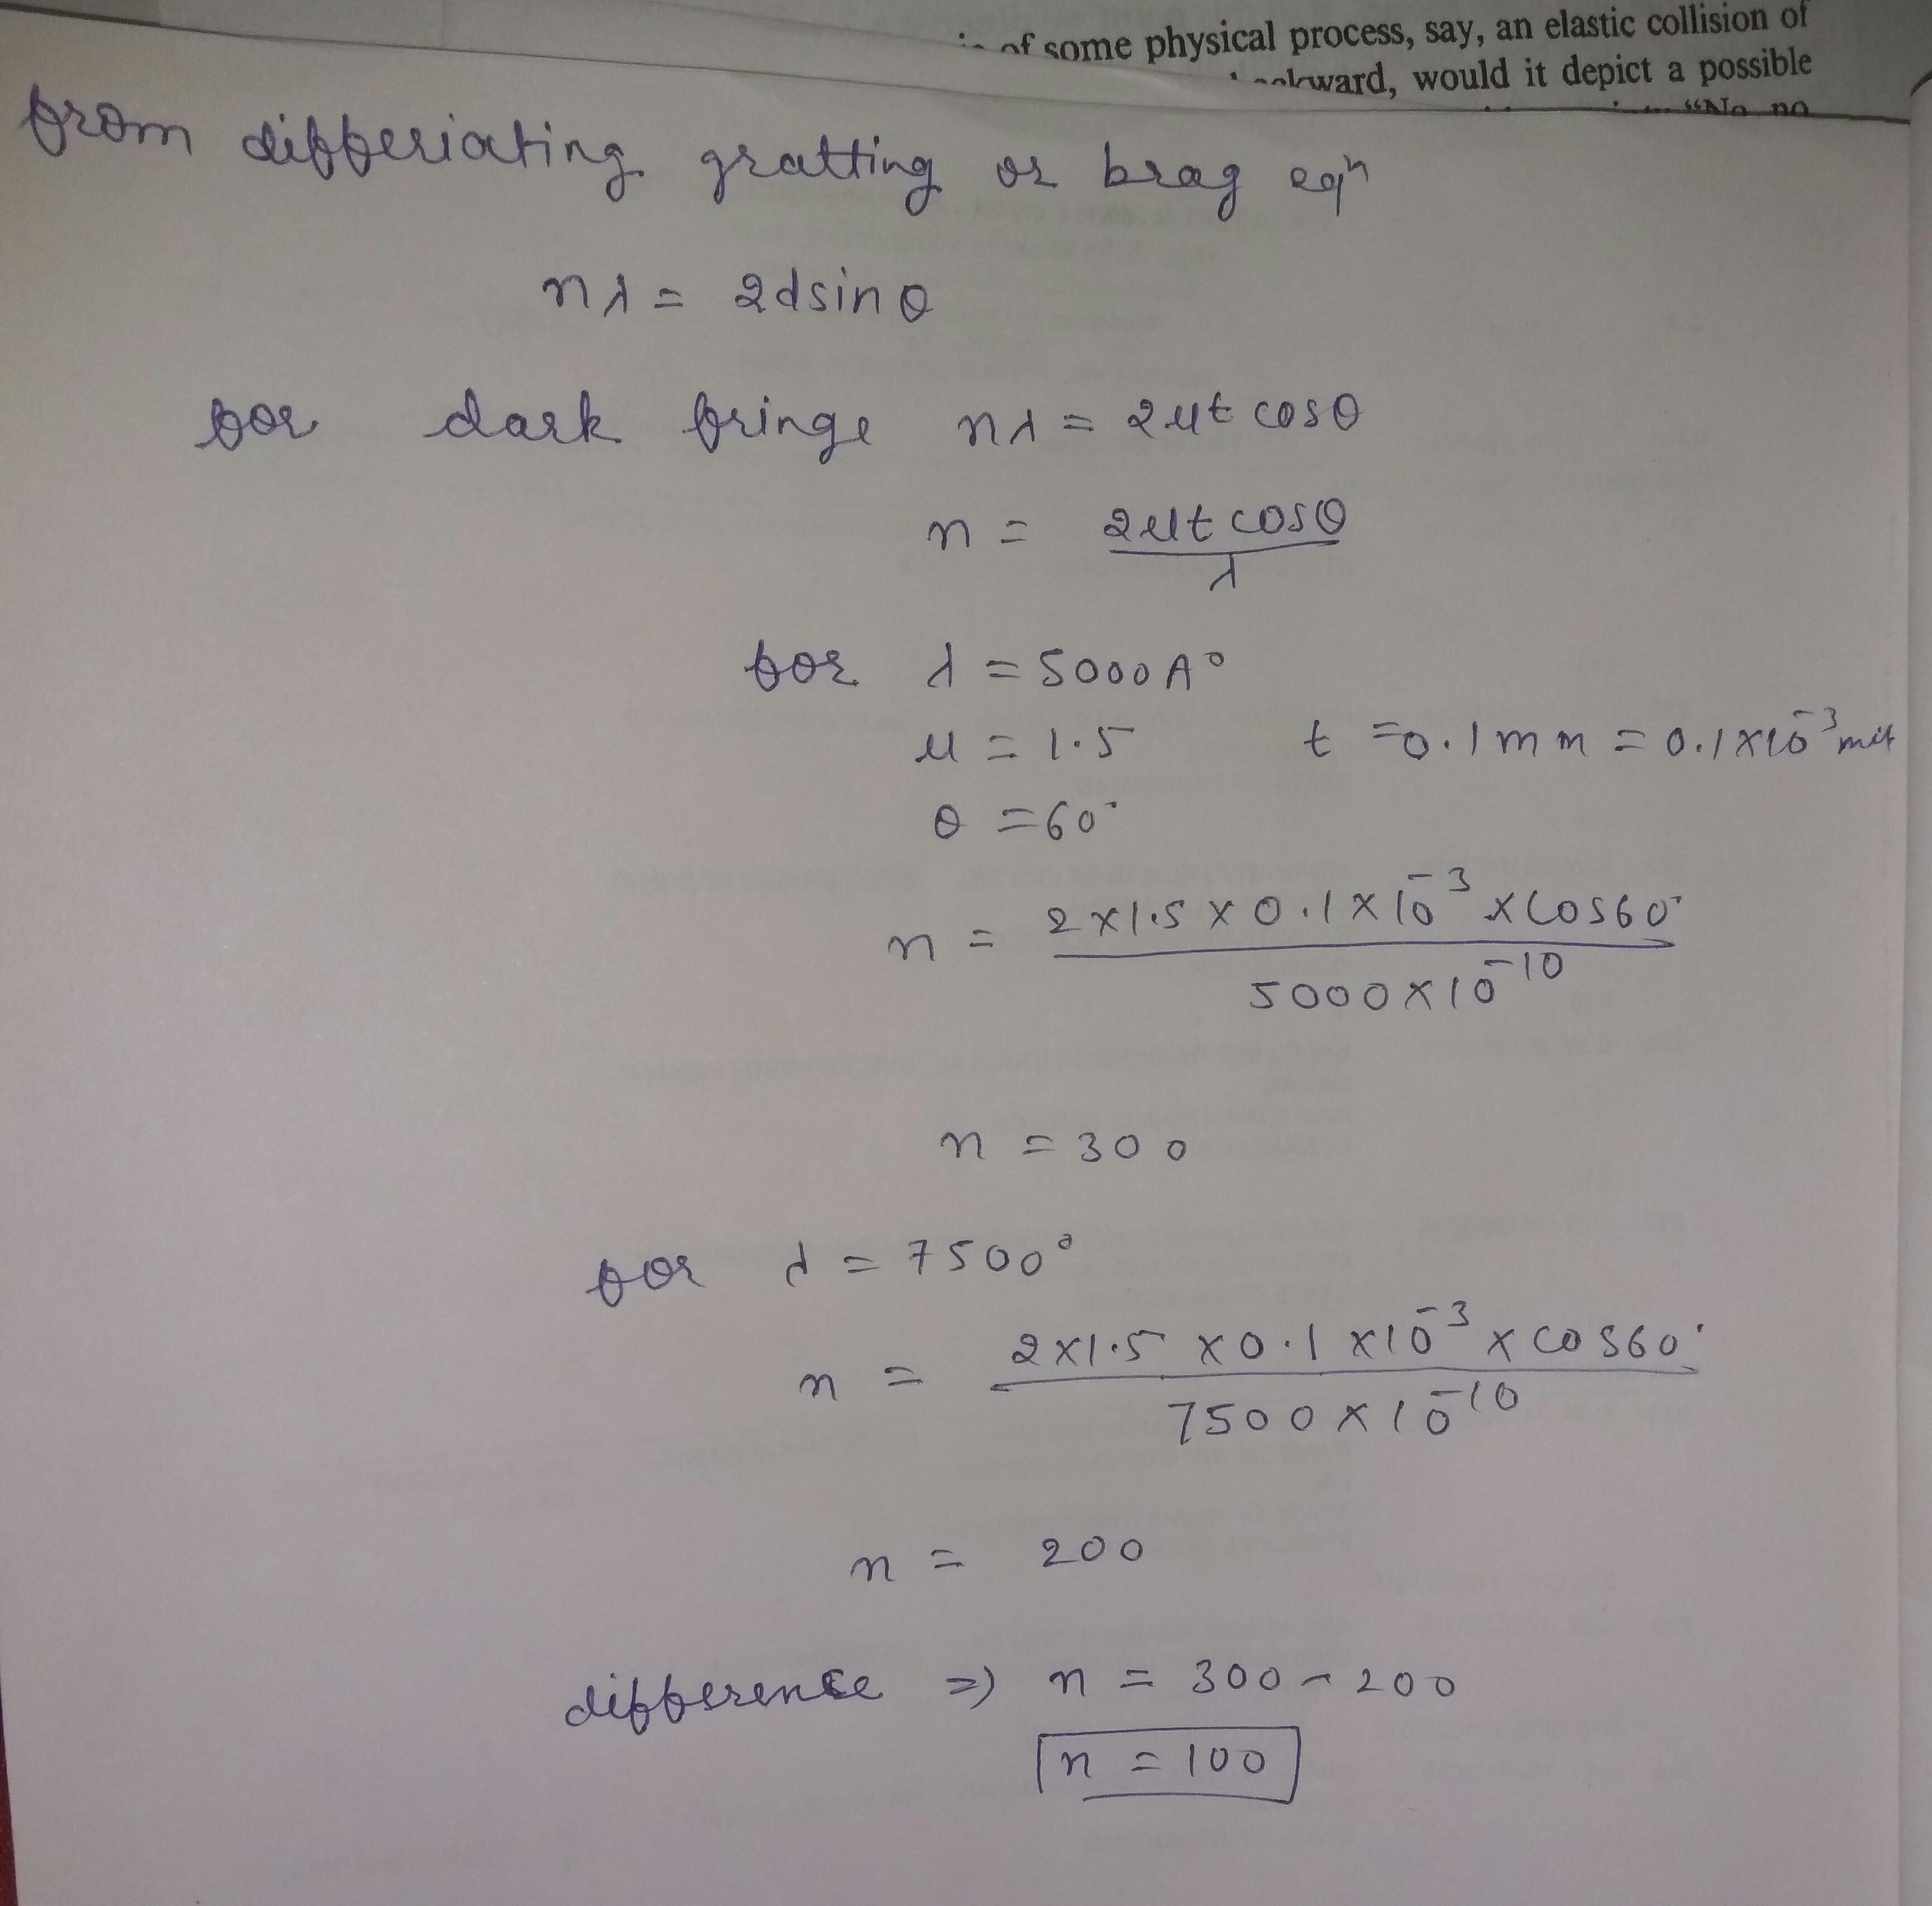 of some physical process, say, an elastic collision of
would it depict a possible
"No no
from differiating gratting or brag eqⁿ
nλ = 2dsinθ
for dark fringe nλ = 2μt cosθ
n = 2μt cosθ
λ
for λ = 5000 A°
μ = 1.5 t = 0.1 mm = 0.1×10⁻³ met
θ = 60°
n = 2×1.5×0.1×10⁻³×cos60°
5000×10⁻¹⁰
n = 300
for λ = 7500°
n = 2×1.5×0.1×10⁻³×cos60°
7500×10⁻¹⁰
n = 200
difference ⇒ n = 300-200
n = 100